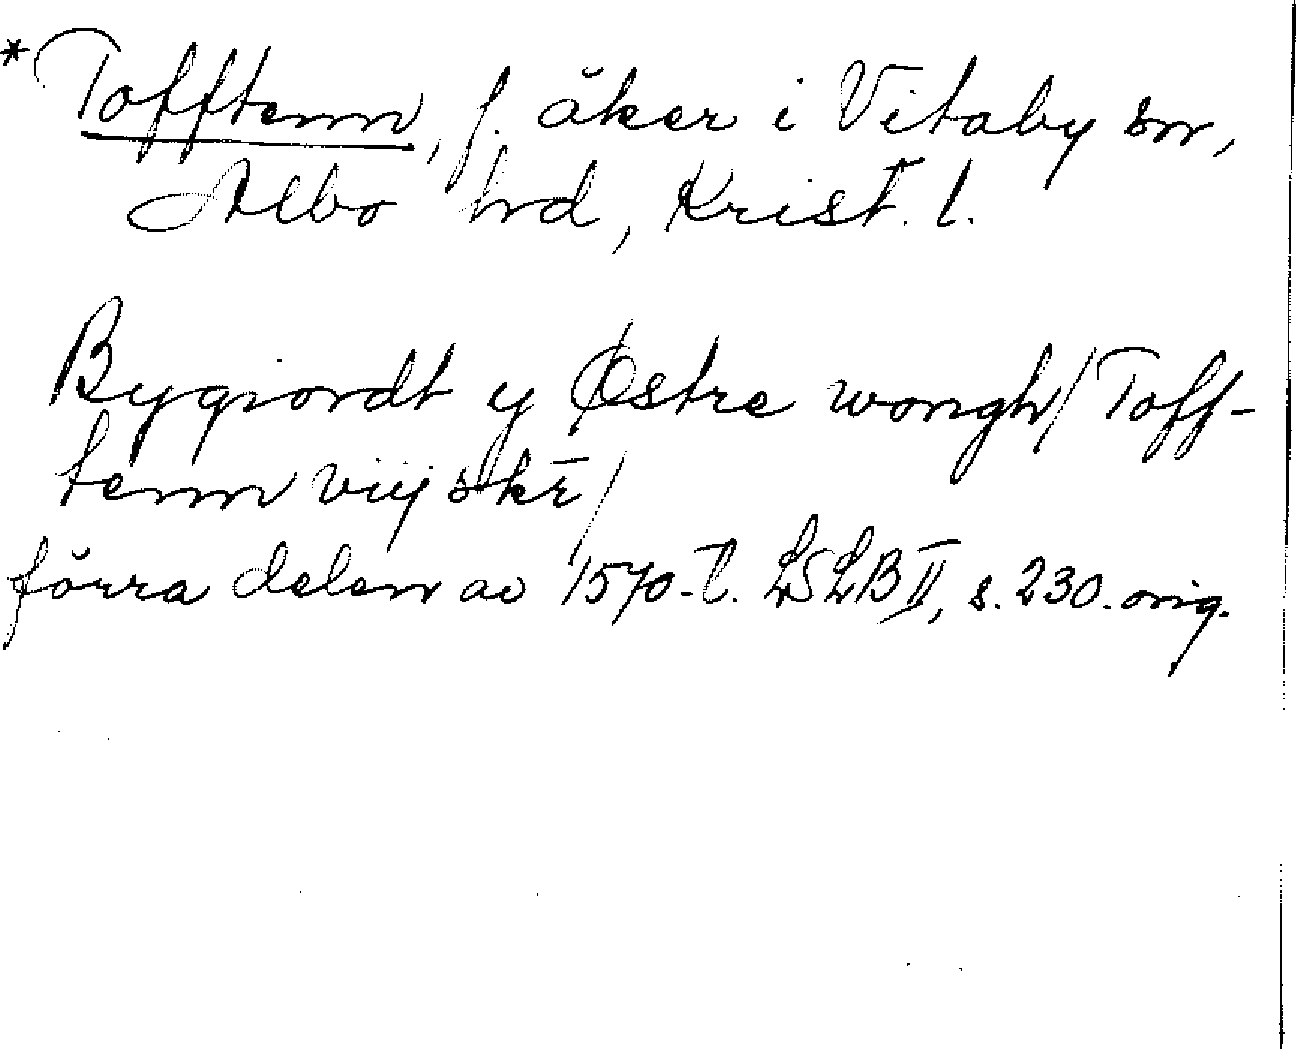 * Tofftenn, f. åker i Vitaby sn,
Albo hrd, Krist. l.
Bygiordt y Østre wongh/Toff-
tenn viij skr/
förra delen av 1570-t. LSLB II, s. 230. orig.